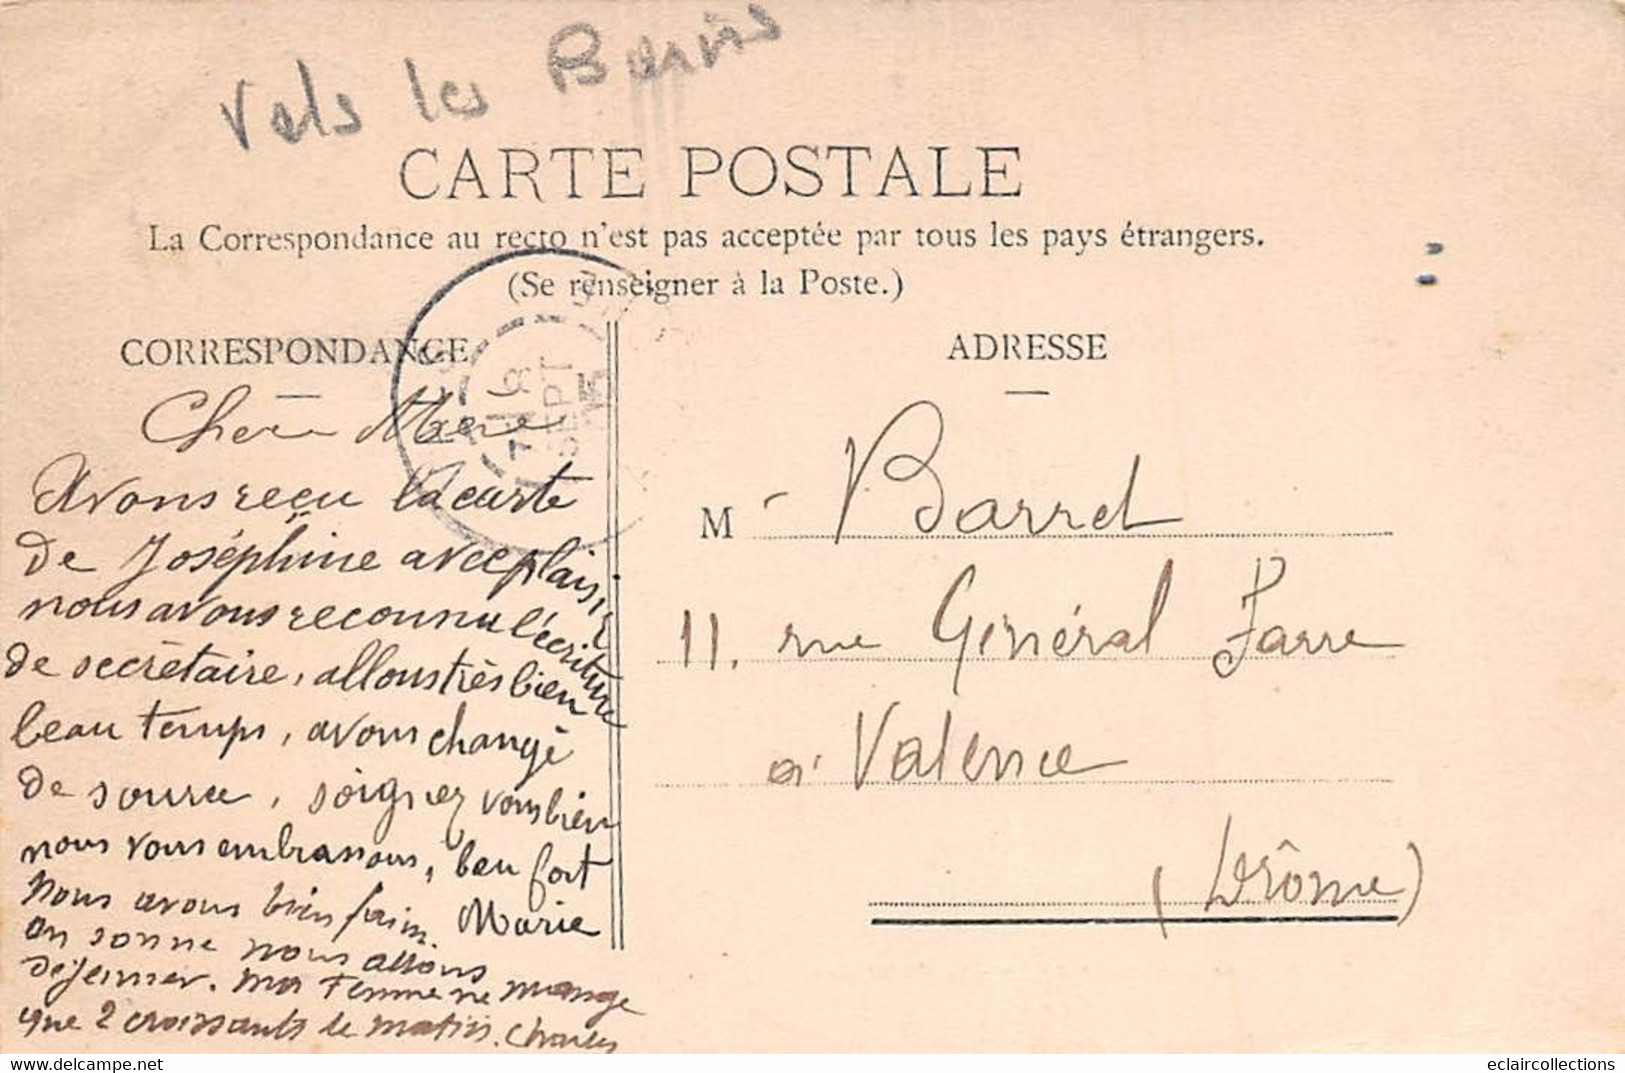 Vals les Bains
CARTE POSTALE
La Correspondance au recto n'est pas acceptée par tous les pays étrangers.
(Se renseigner à la Poste.)
CORRESPONDANCE
Chère Mère
Avons reçu la carte
de Joséphine avec plaisir
nous avons reconnu l'écriture
de secrétaire, allons très bien
beau temps, avons changé
de source, soignez vous bien
nous vous embrassons, bien fort
Marie
Nous avons bien faim
on sonne nous allons
déjeuner. ma femme ne mange
que 2 croissants le matin. Charles
7 9
SEPT
ADRESSE
M Barret
11. rue Général Farre
à Valence
(Drôme)
eclaircollections